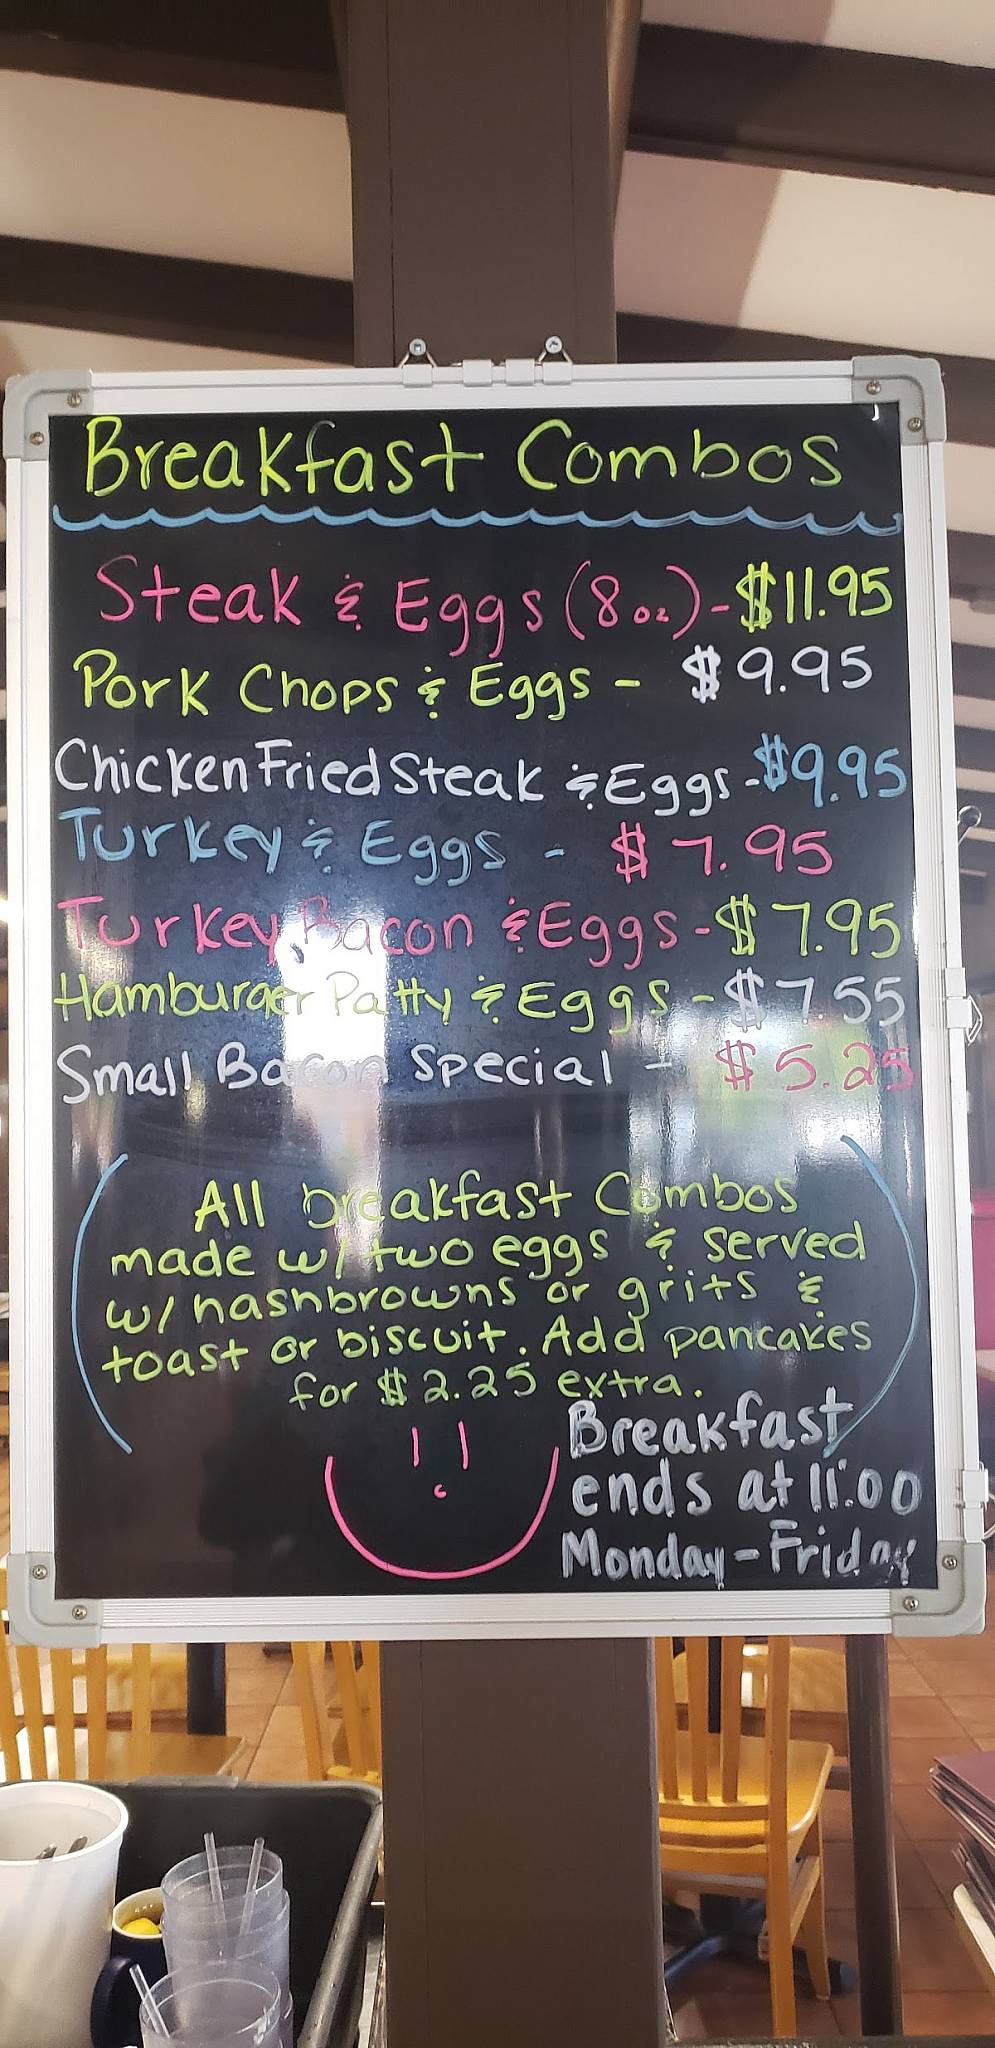 Breakfast Combos
Steak & Eggs (8oz) - $11.95
Pork Chops & Eggs - $9.95
Chicken Fried Steak & Eggs - $9.95
Turkey & Eggs - $7.95
Turkey Bacon & Eggs - $7.95
Hamburger Patty & Eggs - $7.55
Small Bacon Special - $5.25
(All breakfast Combos
made w/ two eggs & served
w/ hashbrowns or grits &
toast or biscuit. Add pancakes
for $2.25 extra.)
Breakfast
ends at 11:00
Monday - Friday